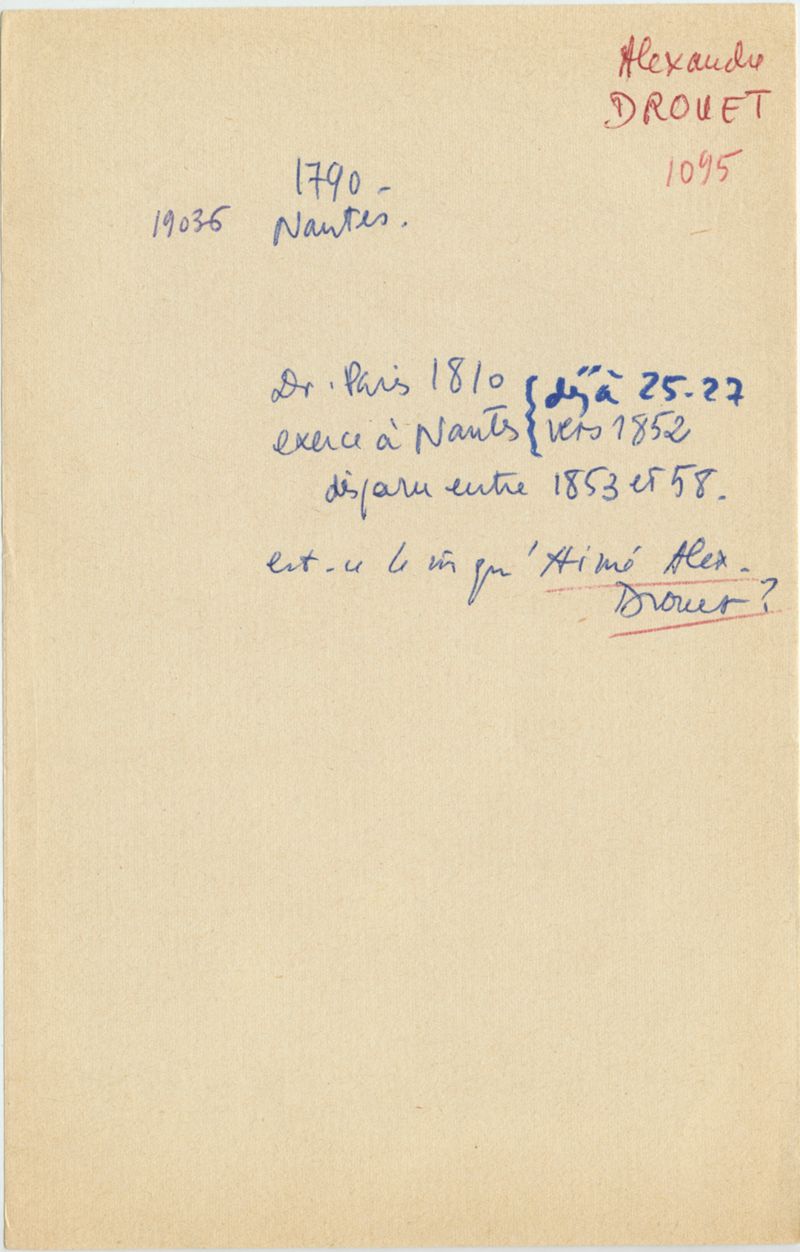 Alexandre
DROUET
1095
1790 -
19036 Nantes.
Dr. Paris 1810 { déjà 25-27
exerce à Nantes { vers 1852
disparu entre 1853 et 58.
est-ce le m̂ qu'Aimé Alex.
Drouet ?